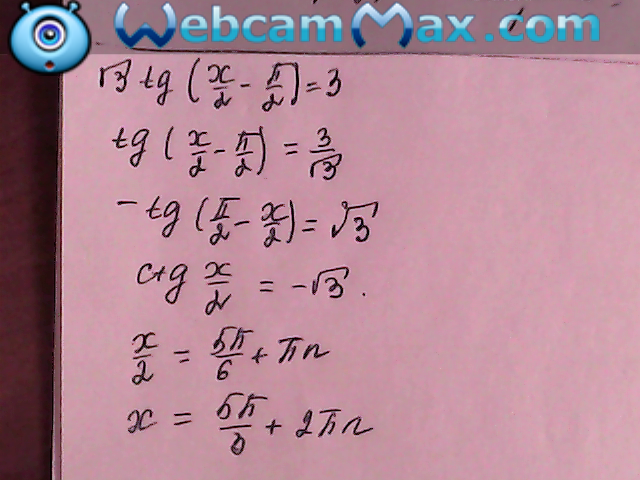 WebcamMax.com
√3 tg (x/2 - π/2) = 3
tg (x/2 - π/2) = 3/√3
- tg (π/2 - x/2) = √3
ctg x/2 = -√3.
x/2 = 5π/6 + πn
x = 5π/3 + 2πn